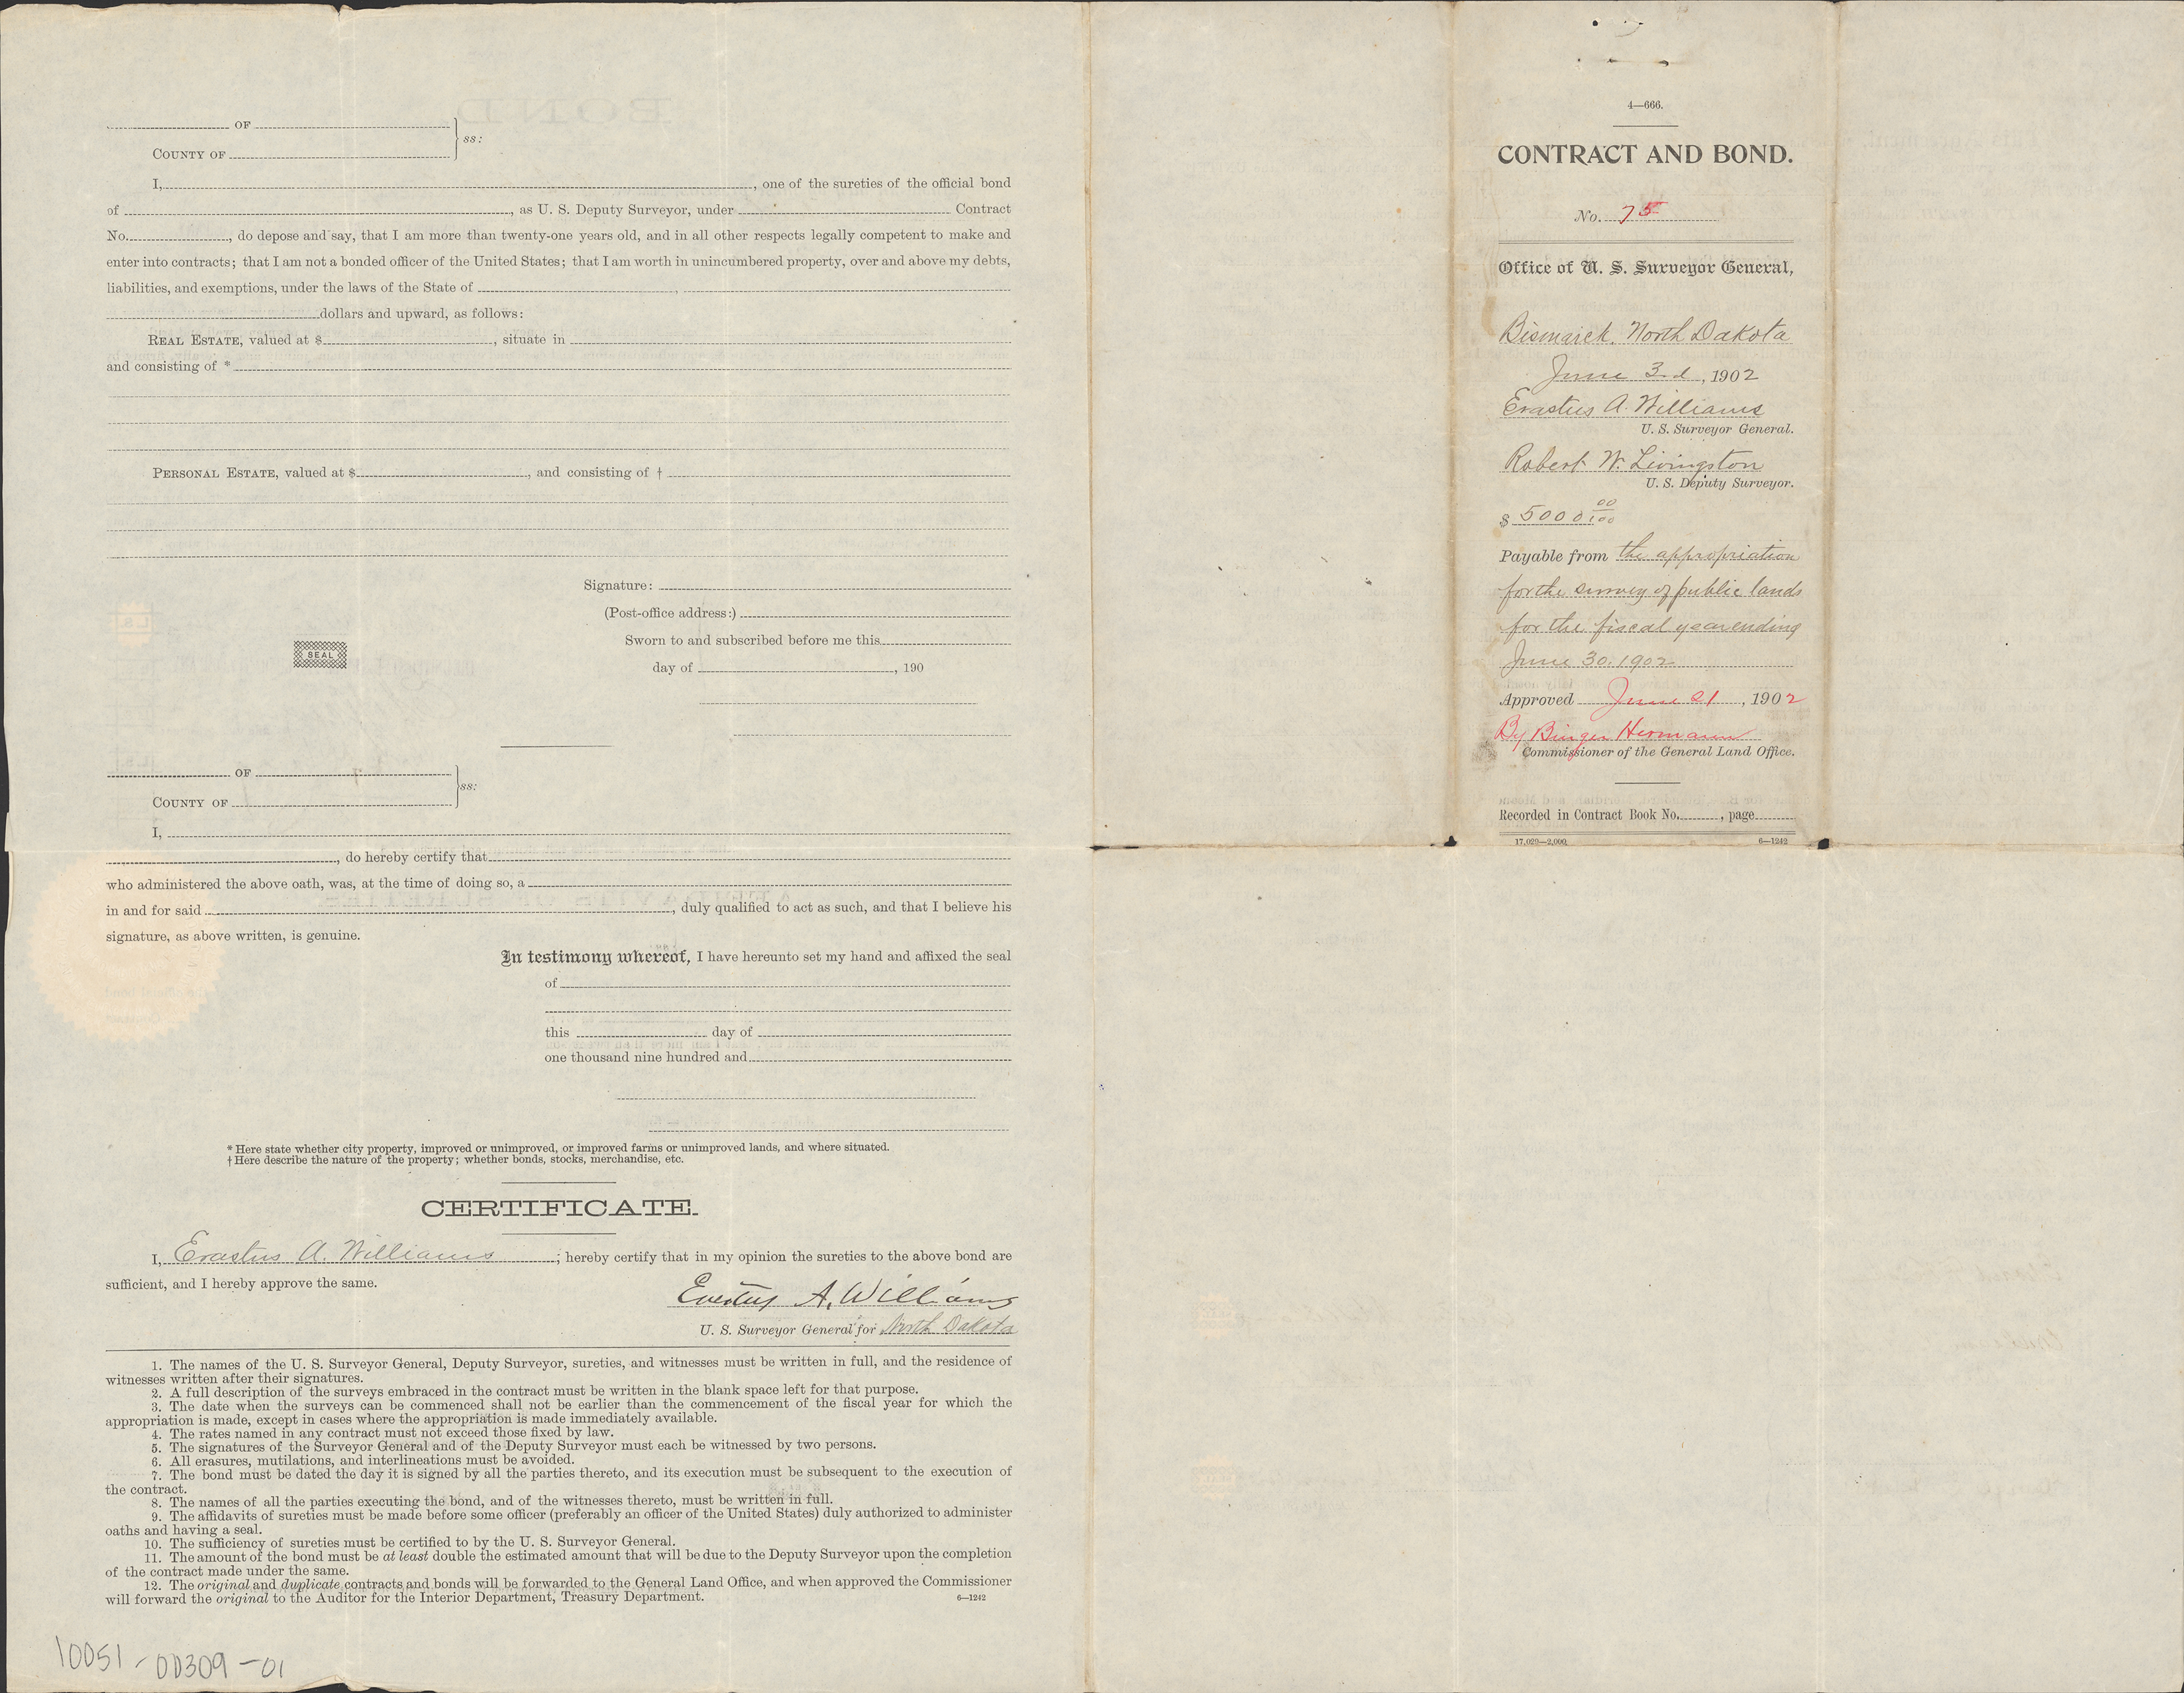 OF
COUNTY OF
ss:
I, , one of the sureties of the official bond
of , as U. S. Deputy Surveyor, under Contract
No. , do depose and say, that I am more than twenty-one years old, and in all other respects legally competent to make and
enter into contracts; that I am not a bonded officer of the United States; that I am worth in unincumbered property, over and above my debts,
liabilities, and exemptions, under the laws of the State of ,
dollars and upward, as follows:
REAL ESTATE, valued at $ , situate in
and consisting of *
PERSONAL ESTATE, valued at $ , and consisting of †
Signature:
(Post-office address:)
SEAL
Sworn to and subscribed before me this
day of , 190
OF
COUNTY OF
ss:
I,
, do hereby certify that
who administered the above oath, was, at the time of doing so, a
in and for said , duly qualified to act as such, and that I believe his
signature, as above written, is genuine.
In testimony whereof, I have hereunto set my hand and affixed the seal
of
this day of
one thousand nine hundred and
* Here state whether city property, improved or unimproved, or improved farms or unimproved lands, and where situated.
† Here describe the nature of the property; whether bonds, stocks, merchandise, etc.
CERTIFICATE.
I, Erastus A. Williams ; hereby certify that in my opinion the sureties to the above bond are
sufficient, and I hereby approve the same.
Erastus A. Williams
U. S. Surveyor General for North Dakota
1. The names of the U. S. Surveyor General, Deputy Surveyor, sureties, and witnesses must be written in full, and the residence of
witnesses written after their signatures.
2. A full description of the surveys embraced in the contract must be written in the blank space left for that purpose.
3. The date when the surveys can be commenced shall not be earlier than the commencement of the fiscal year for which the
appropriation is made, except in cases where the appropriation is made immediately available.
4. The rates named in any contract must not exceed those fixed by law.
5. The signatures of the Surveyor General and of the Deputy Surveyor must each be witnessed by two persons.
6. All erasures, mutilations, and interlineations must be avoided.
7. The bond must be dated the day it is signed by all the parties thereto, and its execution must be subsequent to the execution of
the contract.
8. The names of all the parties executing the bond, and of the witnesses thereto, must be written in full.
9. The affidavits of sureties must be made before some officer (preferably an officer of the United States) duly authorized to administer
oaths and having a seal.
10. The sufficiency of sureties must be certified to by the U. S. Surveyor General.
11. The amount of the bond must be at least double the estimated amount that will be due to the Deputy Surveyor upon the completion
of the contract made under the same.
12. The original and duplicate contracts and bonds will be forwarded to the General Land Office, and when approved the Commissioner
will forward the original to the Auditor for the Interior Department, Treasury Department.
6—1242
10051-00309-01
4—666.
CONTRACT AND BOND.
No. 75
Office of U. S. Surveyor General,
Bismarck, North Dakota
June 3rd, 1902
Erastus A. Williams
U. S. Surveyor General.
Robert W. Livingston
U. S. Deputy Surveyor.
$ 5000 00/100
Payable from the appropriation
for the survey of public lands
for the fiscal year ending
June 30. 1902
Approved June 21, 1902
By Binger Hermann
Commissioner of the General Land Office.
Recorded in Contract Book No. , page
17,029—2,000 6—1242